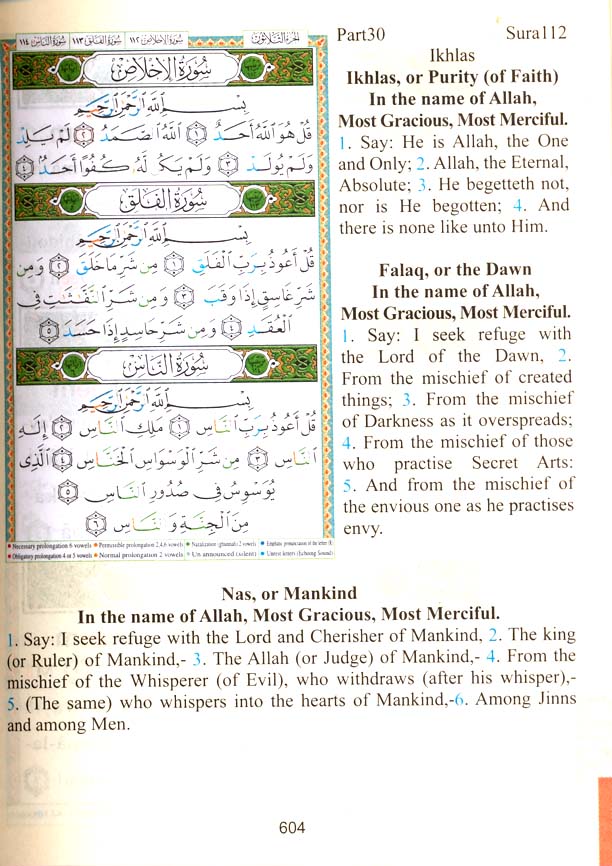 الجزء الثلاثون
سورة الإخلاص ١١٢ سورة الفلق ١١٣ سورة الناس ١١٤
سُورَةُ الإِخْلَاصِ
بِسْمِ ٱللَّهِ ٱلرَّحْمَٰنِ ٱلرَّحِيمِ
قُلْ هُوَ ٱللَّهُ أَحَدٌ ١ ٱللَّهُ ٱلصَّمَدُ ٢ لَمْ يَلِدْ
وَلَمْ يُولَدْ ٣ وَلَمْ يَكُن لَّهُ كُفُوًا أَحَدٌ ٤
سُورَةُ الفَلَقِ
بِسْمِ ٱللَّهِ ٱلرَّحْمَٰنِ ٱلرَّحِيمِ
قُلْ أَعُوذُ بِرَبِّ ٱلْفَلَقِ ١ مِن شَرِّ مَا خَلَقَ ٢ وَمِن
شَرِّ غَاسِقٍ إِذَا وَقَبَ ٣ وَمِن شَرِّ ٱلنَّفَّٰثَٰتِ فِى
ٱلْعُقَدِ ٤ وَمِن شَرِّ حَاسِدٍ إِذَا حَسَدَ ٥
سُورَةُ النَّاسِ
بِسْمِ ٱللَّهِ ٱلرَّحْمَٰنِ ٱلرَّحِيمِ
قُلْ أَعُوذُ بِرَبِّ ٱلنَّاسِ ١ مَلِكِ ٱلنَّاسِ ٢ إِلَٰهِ
ٱلنَّاسِ ٣ مِن شَرِّ ٱلْوَسْوَاسِ ٱلْخَنَّاسِ ٤ ٱلَّذِى
يُوَسْوِسُ فِى صُدُورِ ٱلنَّاسِ ٥
مِنَ ٱلْجِنَّةِ وَٱلنَّاسِ ٦
Necessary prolongation 6 vowels Permissible prolongation 2,4,6 vowels Nazalization (ghunnah) 2 vowels Emphatic pronunciation of the letter
Obligatory prolongation 4 or 5 vowels Normal prolongation 2 vowels Un announced (silent) Unrest letters (Echoing Sound)
Part30 Sura112
Ikhlas
Ikhlas, or Purity (of Faith)
In the name of Allah,
Most Gracious, Most Merciful.
1. Say: He is Allah, the One
and Only; 2. Allah, the Eternal,
Absolute; 3. He begetteth not,
nor is He begotten; 4. And
there is none like unto Him.
Falaq, or the Dawn
In the name of Allah,
Most Gracious, Most Merciful.
1. Say: I seek refuge with
the Lord of the Dawn, 2.
From the mischief of created
things; 3. From the mischief
of Darkness as it overspreads;
4. From the mischief of those
who practise Secret Arts:
5. And from the mischief of
the envious one as he practises
envy.
Nas, or Mankind
In the name of Allah, Most Gracious, Most Merciful.
1. Say: I seek refuge with the Lord and Cherisher of Mankind, 2. The king
(or Ruler) of Mankind,- 3. The Allah (or Judge) of Mankind,- 4. From the
mischief of the Whisperer (of Evil), who withdraws (after his whisper),-
5. (The same) who whispers into the hearts of Mankind,-6. Among Jinns
and among Men.
604